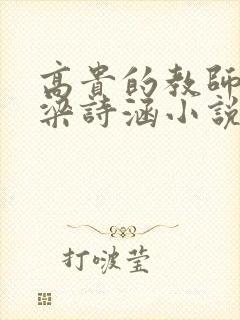 高貴的教師
梁詩涵小說
打啵莹